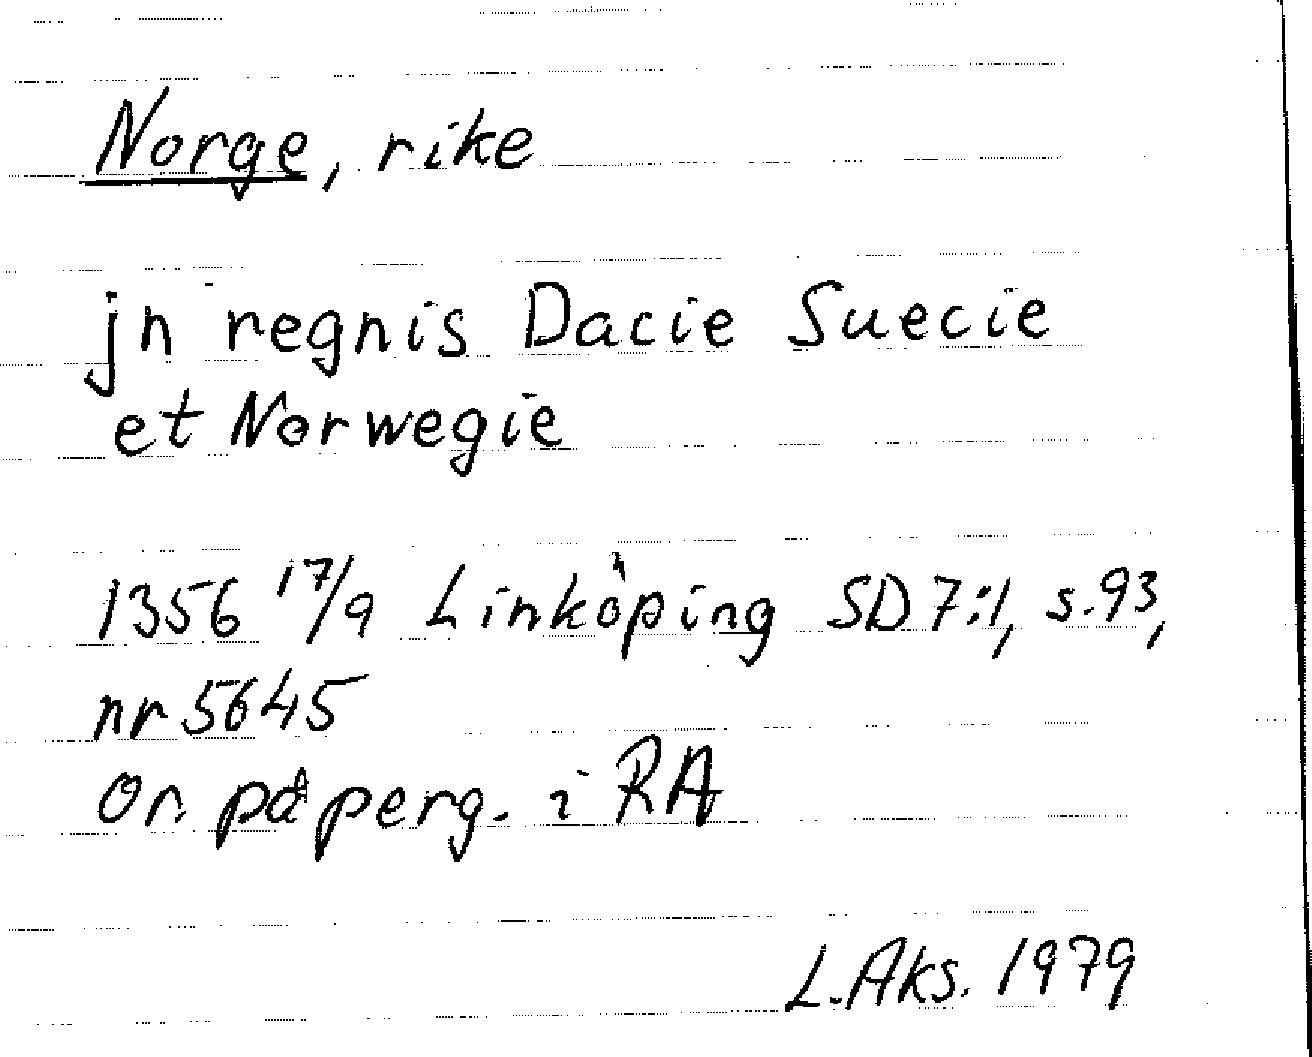 Norge, rike
jn regnis Dacie Suecie
et Norwegie
1356 17/9 Linköping SD 7:1, s. 93,
nr 5645
Or. på perg. i RA
L. Aks. 1979